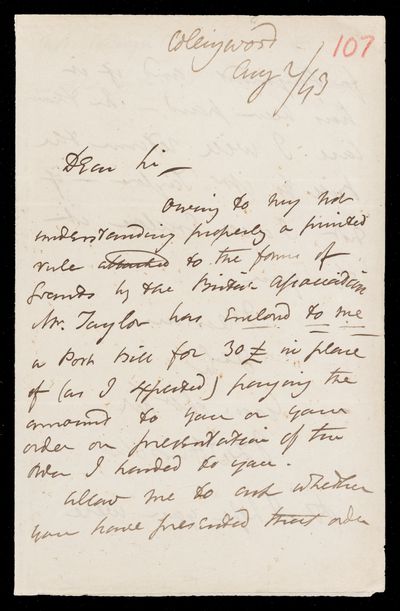 Collingwood
107
Aug 2/43
Dear Sir
Owing to my not
understanding properly a printed
rule attached to the forms of
Grants by the British Association
Mr. Taylor has Enclosed to me
a Post Bill for 30£ in place
of (as I expected) paying the
amount to you or your
order on presentation of the
order I handed to you.
Allow me to ask whether
you have presented that order